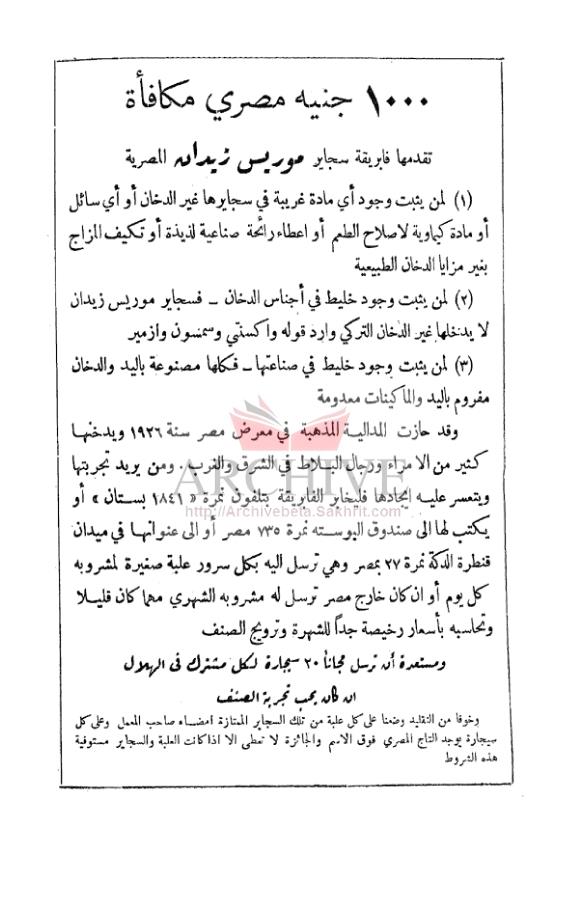 ١٠٠٠ جنيه مصري مكافأة
تقدمها فابريقة سجاير موريس زيدان المصرية
(١) لمن يثبت وجود أي مادة غريبة في سجايرها غير الدخان أو أي سائل
أو مادة كيماوية لاصلاح الطعم أو اعطاء رائحة صناعية لذيذة أو تكيف المزاج
بغير مزايا الدخان الطبيعية
(٢) لمن يثبت وجود خليط في أجناس الدخان – فسجاير موريس زيدان
لا يدخلها غير الدخان التركي وارد قوله واكستي وسمسون وازمير
(٣) لمن يثبت وجود خليط في صناعتها – فكلها مصنوعة باليد والدخان
مفروم باليد والماكينات معدومة
وقد حازت المدالية المذهبة في معرض مصر سنة ١٩٢٦ ويدخنها
كثير من الامراء ورجال البلاط في الشرق والغرب . ومن يريد تجربتها
ARCHIVE
ويتعسر عليه إيجادها فليخابر الفابريقة بتلفون نمرة « ١٨٤١ بستان » أو
http://Archivebeta.Sakhrit.com
يكتب لها الى صندوق البوسته نمرة ٧٣٥ مصر أو الى عنوانها في ميدان
قنطرة الدكة نمرة ٢٧ بمصر وهي ترسل اليه بكل سرور علبة صغيرة لمشروبه
كل يوم أو ان كان خارج مصر ترسل له مشروبه الشهري مهما كان قليلا
وتحاسبه بأسعار رخيصة جداً للشهرة وترويج الصنف
ومستعدة أن ترسل مجاناً ٢٠ سيجارة لكل مشترك فى الهلال
ان كان يحب تجربة الصنف
وخوفا من التقليد وضعنا على كل علبة من تلك السجاير الممتازة امضاء صاحب المعمل وعلى كل
سيجارة يوجد التاج المصري فوق الاسم والجائزة لا تعطى الا اذا كانت العلبة والسجاير مستوفية
هذه الشروط